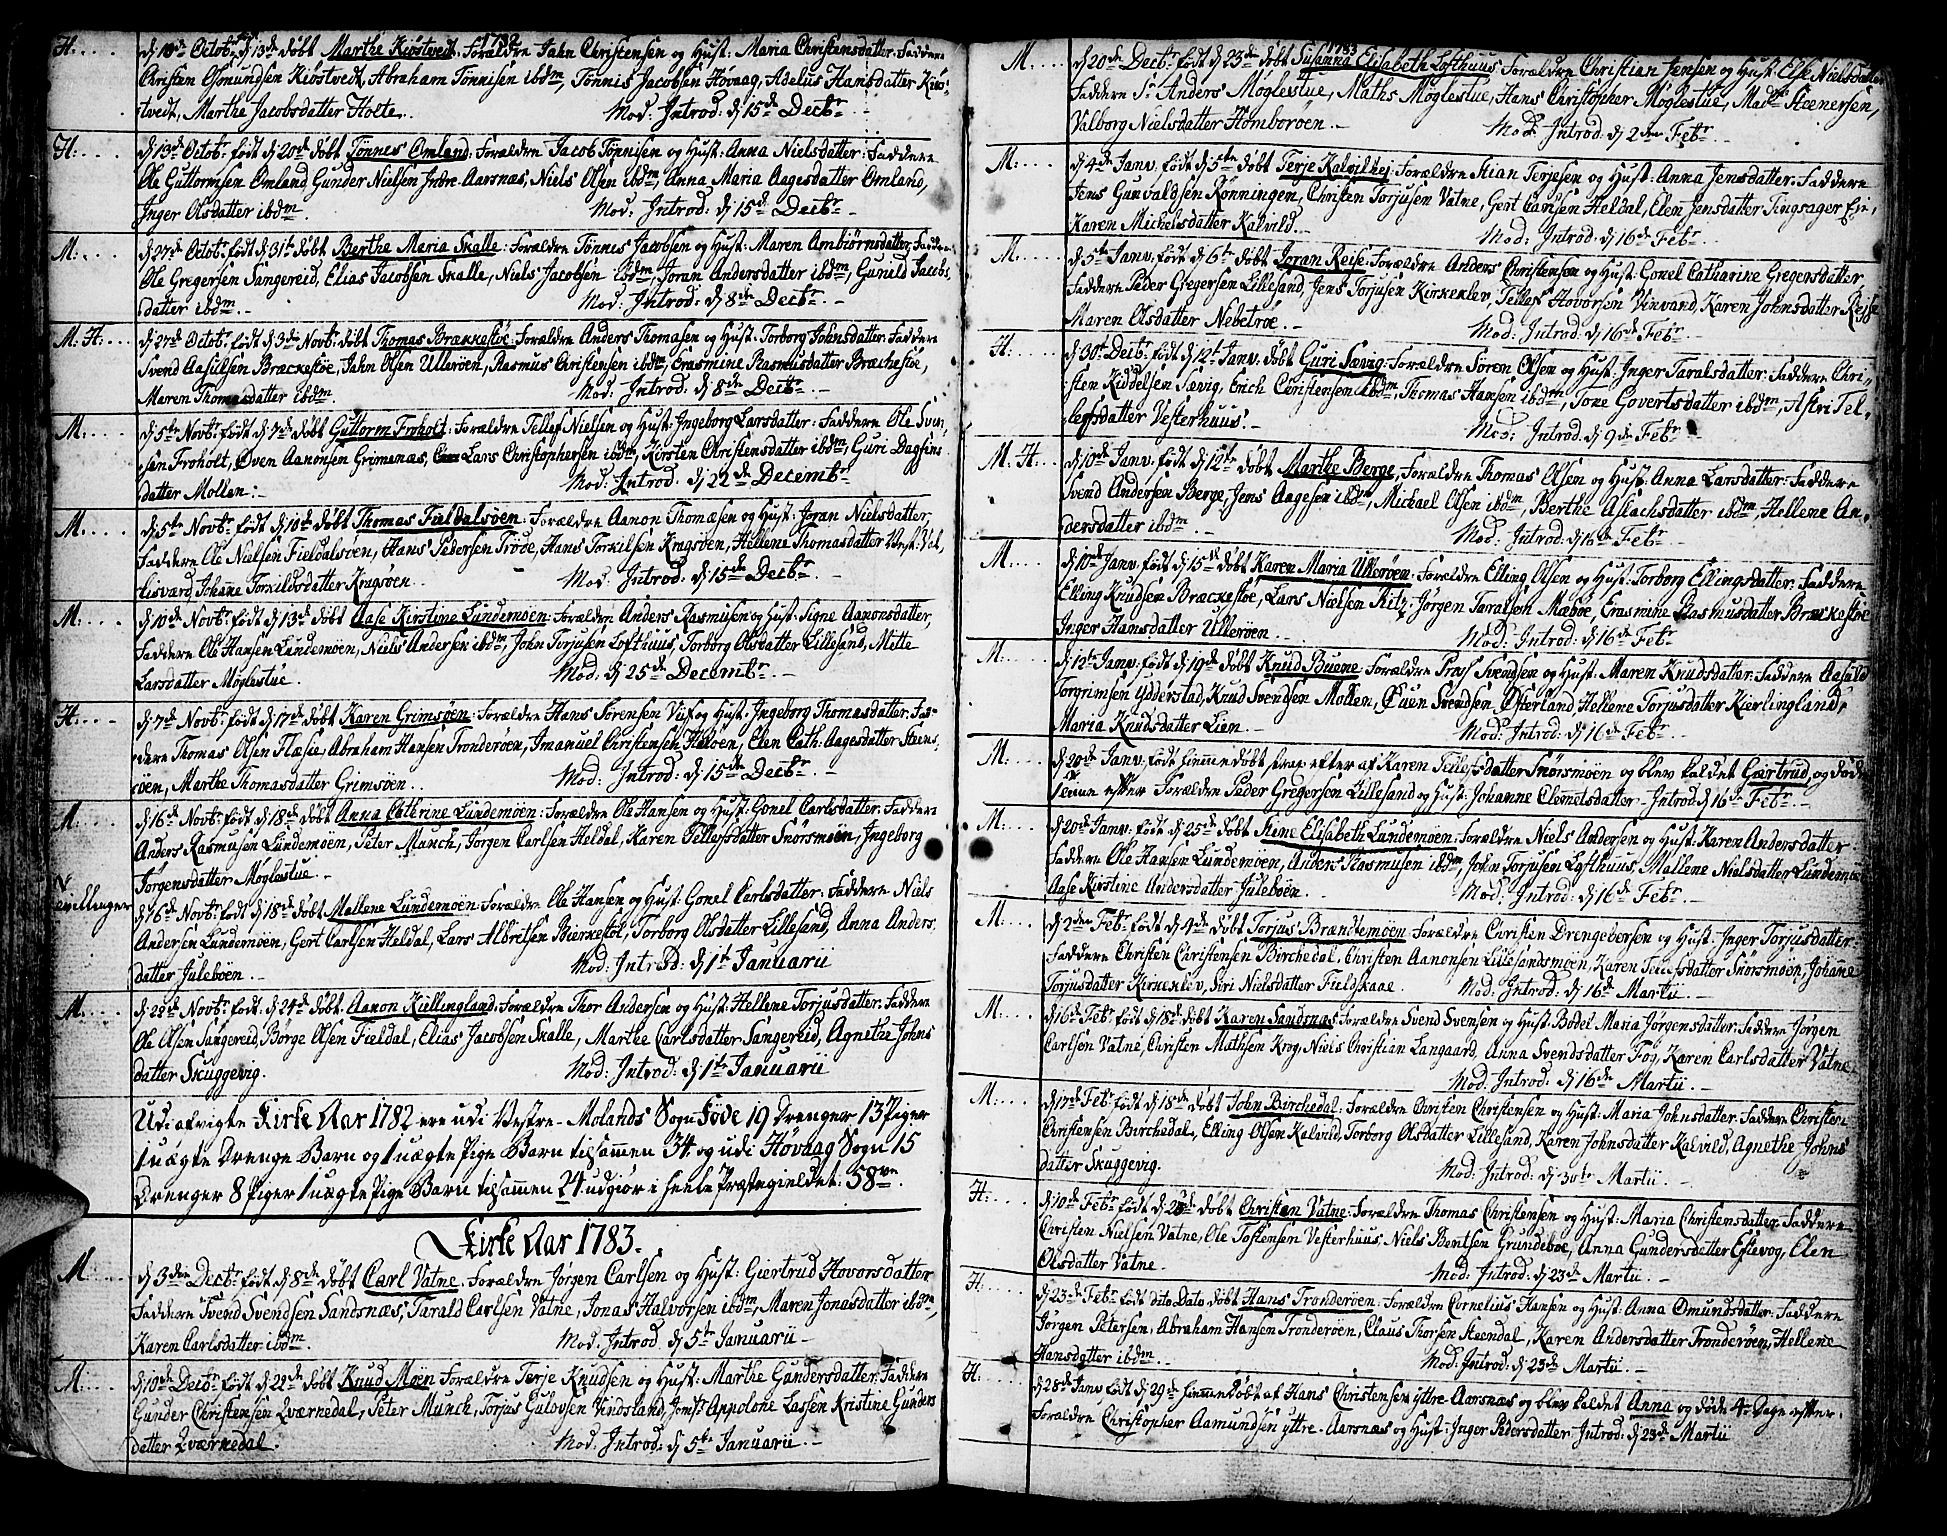 1782
H: d 10de Octobr født d 13de døbt Marthe Kiøstvedt Forældre Jahn Christensen og Hust: Maria Christensdatter: Faddere
Christen Osmundsen Kiøstvedt, Abraham Tønnisen ibdm, Tønnis Jacobsen Høvaag, Adelus Hansdatter Kiø-
stvedt, Marthe Jacobsdatter Holte. Mod: Introd: d 15de Decbr
H: d 19de Octobr født d 20de døbt Tønnes Omland: Forældre Jacob Tønnisen og Hust: Anna Nielsdatter: Faddere
Ole Guttormsen Omland Gunder Nielsen Indre-Aarsnæs, Niels Olsen ibdm, Anna Maria Aagesdatter Omland,
Inger Olsdatter ibdm. Mod: Introd: d 15de Decbr
M: d 27de Octobr født d 31te døbt Berthe Maria Skalle: Forældre Tønnes Jacobsen og Hust: Maren Ambiørnsdatter, Faddere
Ole Gregersen Sangereid, Elias Jacobsen Skalle, Niels Jacobsen ibdm, Joran Andersdatter ibdm, Gunild Jacobs
datter ibdm. Mod: Introd: d 8de Decbr
M. H: d 27de Octobr født d 3de Novbr døbt Thomas Brækkestøe: Forældre Anders Thomasen og Hust: Torborg Johnsdatter: Faddere
Svend Aasulsen Brækestøe, Jahn Olsen Ulleröen, Rasmus Christensen ibdm, Erasmine Rasmusdatter Brækestøe,
Maren Thomasdatter ibdm. Mod: Introd: d 8de Decbr
M: d 5te Novbr født d 7de døbt Guttorm Froholt: Forældre Tellef Nielsen og Hust: Ingeborg Larsdatter: Faddere Ole Sven
sen Froholt, Øven Aanonsen Grimenæs, Lars Christophersen ibdm, Kirsten Christensdatter ibdm, Guri Dagfins
datter Mollen:- Mod: Introd: d 22de Decembr
M: d 5te Novbr født d 10de døbt Thomas Fieldalsøen: Forældre Aanon Thomæsen og Hust: Joran Nielsdatter,
Faddere Ole Nielsen Fieldalsöen, Hans Pedersen Trøde, Hans Torkilsen Kragsøen, Hellene Thomasdatter Vest. Val,
lisværd, Johane Torkildsdatter Kragsøen. Mod: Introd: d 15de Decbr
M: d 10de Novbr født d 13de døbt Aase Kirstine Lundemøen: Forældre Anders Rasmusen og Hust: Signe Aanonsdatter,
Faddere Ole Hansen Lundemøen, Niels Andersen ibdm, John Torjusen Lofthuus, Torborg Olsdatter Lillesand, Mette
Larsdatter Møglestue. Mod: d 25de Decembr
H: d 7de Novbr født d 17de døbt Karen Grimsøen: Forældre Hans Sørensen Viif og Hust: Ingeborg Thomasdatter. Fad-
dere Thomas Olsen Flæsie, Abraham Hansen Tronderøen, Imanuel Christensen Haløen, Elen Cath: Aagesdatter Steens
öen, Marthe Thomasdatter Grimsöen. Mod: Introd: d 15de Decbr
M: d 16de Novbr født d 18de døbt Anna Cathrine Lundemøen: Forældre Ole Hansen og Hust: Gonel Carlsdatter: Faddere
Anders Rasmusen Lundemøen, Peter Munch, Jørgen Carlsen Heldal, Karen Tellefsdatter Snørsmøen, Ingeborg
Jørgensdatter Møglestue.
Tvillinger d 16de Novbr: født d 18de døbt Mallene Lundemøen: Forældre Ole Hansen og Hust: Gonel Carlsdatter: Faddere: Niels
Andersen Lundemøen, Gert Carlsen Heldal, Lars Aldritsen Bierkestøl, Torborg Olsdatter Lillesand, Anna Anders.
datter Juleböen. Mod: Introd: d 1te Januarii
M: d 22de Novbr født: d 24de døbt Aanon Kiellingland: Forældre Thor Andersen og Hust: Hellene Torjusdatter: Faddere
Ole Olsen Sangereid, Børge Olsen Fieldal, Elias Jacobsen Skalle, Marthe Carlsdatter Sangereid, Agnethe Johns
datter Skuggevig. Mod: Introd: d 1te Januarii
Udi afvigte Kirke Aar 1782 ere udi Vestre-Molands Sogn føde 19 Drenger 13 Piger
1 uægte Drenge Barn og 1 uægte Pige Barn tilsammen 34 og udi Høvaag Sogn 15
Drenger 8 Piger 1 uægte Pige Barn tilsammen 24 udgiør i heele Præstegieldet: 58ve.
Kirke Aar 1783.
M: d 3den Decbr: født d 8de døbt Carl Vatne: Forældre Jørgen Carlsen og Hust: Giertrud Hovorsdatter
Faddere Svend Svendsen Sandsnæs, Tarald Carlsen Vatne, Jonas Halvorsen ibdm, Maren Jonasdatter ibdm,
Karen Carlsdatter ibdm. Mod: Introd d 5te Januarii
M: d 10de Decbr: født d 22de døbt Knud Møen Forældre Terje Knudsen og Hust: Marthe Gundersdatter: Faddere
Gunder Christensen Qværnedal, Peter Munch, Torjus Gulovsen Vindsland, Jomfr: Appolone Lassen Kristine Gunders
datter Qværnedal. Mod: Introd: d 5te Januarii
1783
M: d 20de Decbr født d 23de døbt Susanna Elisabeth Lofthuus: Forældre Christian Jensen og Hust: Else Nielsdatter
Faddere Sr Anders Møglestue, Maths Møglestue, Hans Christopher Møglestue, Madme Steenersen,
Valborg Nielsdatter Homborøen. Mod: Introd: d 2den Febr
M: d 4de Janv. født d 5te døbt Terje Kalvilhej: Forældre Stian Terjesen og Hust: Anna Jensdatter: Faddere
Jens Gunvaldsen Rønningen, Christen Torjusen Vatne, Gert Carlsen Heldal, Elen Jensdatter Tingsager Eje,
Karen Michelsdatter Kalvild. Mod: Introd: d 16de Febr
M: d 5te Janv. født d 6te døbt Joran Reise: Forældre Anders Christensen og Hust: Gonel Catharine Gregersdatter
Faddere Peder Gregersen Lillesand, Jens Torjusen Kirkeklev, Tellef Hovorsen Vinvand, Karen Johnsdatter Reise
Maren Olsdatter Nebetrøe. Mod: Introd: d 16de Febr
H: d 30te Decbr: født d 12te Janv. døbt Guri Sævig: Forældre Soren Olsen og Hust: Inger Taralsdatter: Faddere Chri-
sten Kiddelsen Sævig, Erich Christensen ibdm, Thomas Hansen ibdm, Tone Govertsdatter ibdm, Astri Tel-
lefsdatter Vesterhuus. Mod: Introd: d 9de Febr
M. H: d 10de Janv: født d 12te døbt Marthe Berge, Forældre Thomas Olsen og Hust: Anna Larsdatter: Faddere
Svend Andersen Berge, Jens Aagesen ibdm, Michael Olsen ibdm, Berthe Aslachsdatter ibdm, Hellene An-
dersdatter ibdm. Mod: Introd: d 16de Febr
M: d 10de Janv: født d 15de døbt Karen Maria Ulleröen: Forældre Elling Olsen og Hust: Torborg Ellingsdatter: Faddere
Elling Knudsen Brækestøe, Lars Nielsen Ritz, Jørgen Taralsen Mæbøe, Erasmine Rasmusdatter Brækestøe
Inger Hansdatter Ulleröen. Mod: Introd: d 16de Febr
M: d 12te Janv: født d 19de døbt Knud Buene Forældre Roif Svendsen og Hust: Maren Knudsdatter: Faddere Aasuld
Torgrimsen Ydderstad, Knud Svendsen Mollen, Øuen Svendsen, Østerland Hellene Torjusdatter Kierlingland,
Maria Knudsdatter Lien. Mod: Introd: d 16de Febr
M: d 20de Janv. født hiemmedøbt strax efter af Karen Tellefsdatter Snørsmøen og blev kaldet Giertrud, og døde
samme efter Forældre Peder Gregersen Lillesand og Hust: Johanne Clemetsdatter - Introd: d 16de Febr
M: d 20de Janv: født d 25de døbt Stine Elisabeth Lundemøen: Forældre Niels Andersen og Hust: Karen Andersdatter
Faddere Ole Hansen Lundemøen, Anders Rasmusen ibdm, John Torjusen Lofthuus, Mallene Nielsdatter Lundemøe
Aase Kirstine Andersdatter Juleböen. Mod: Introd: d 16de Febr
M: d 2den Febr født d 4de døbt Torjus Brændemøen: Forældre Christen Drengebersen og Hust: Inger Torjusdatter
Faddere Christen Christensen Birchedal, Christen Aanonsen Lillesandsmøen, Karen Tellefsdatter Snørsmøen, Johanne
Torjusdatter Kirkeklev, Siri Nielsdatter Fieldskaae. Mod: Introd: d 16de Martii
M: d 16de Febr født d 18de døbt Karen Sandsnæs: Forældre Svend Svensen og Hust: Bodel Maria Jørgensdatter: Faddere Jørgen
Carlsen Vatne, Christen Mathsen Krog, Niels Christian Langaard, Anna Svendsdatter Fog, Karen Carlsdatter Vatne
Mod: Introd: d 16de Martii
M: d 17de Febr født d 18de døbt John Birchedal: Forældre Christen Christensen og Hust: Maria Johnsdatter: Faddere Christen
Christensen Birchedal, Elling Olsen Kalvild, Torborg Olsdatter Lillesand, Karen Johnsdatter Kalvild, Agnethe Johns
datter Skuggevig. Mod: Introd: d 30te Martii
H: d 10de Febr født d 20de døbt Christen Vatne: Forældre Thomas Christensen og Hust: Maria Christensdatter: Faddere
Christen Nielsen Vatne, Ole Tostensen Vesterhuus, Niels Bentsen Grundebøe, Anna Gundersdatter Eftevog, Elen
Olsdatter Vatne. Mod: Introd: d 23de Martii
H: d 23de Febr født dito Dato døbt Hans Tronderøen: Forældre Cornelius Hansen og Hust: Anna Omundsdatter: Faddere
Jørgen Petersen, Abraham Hansen Tronderøen, Claus Thorsen Steendal, Karen Andersdatter Tronderøen, Hellene
Hansdatter ibdm. Mod: Introd: d 23de Martii
H: d 28de Janv: født d 29de hiemmedøbt af Hans Christensen yttre-Aarsnæs og blev kaldet Anna og døde 4re Dage efter.
Forældre Christopher Aamundsen yttre-Aarsnæs og Hust: Inger Pedersdatter Introd: d 23de Martii